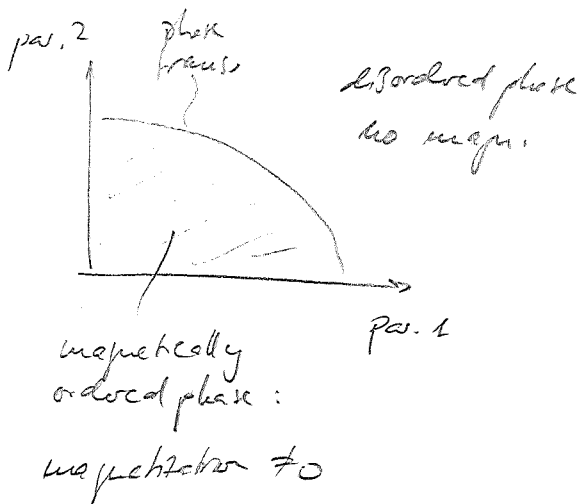 par. 2
phase
trans.
disordered phase
no magn.
par. 1
magnetically
ordered phase :
magnetization ≠0